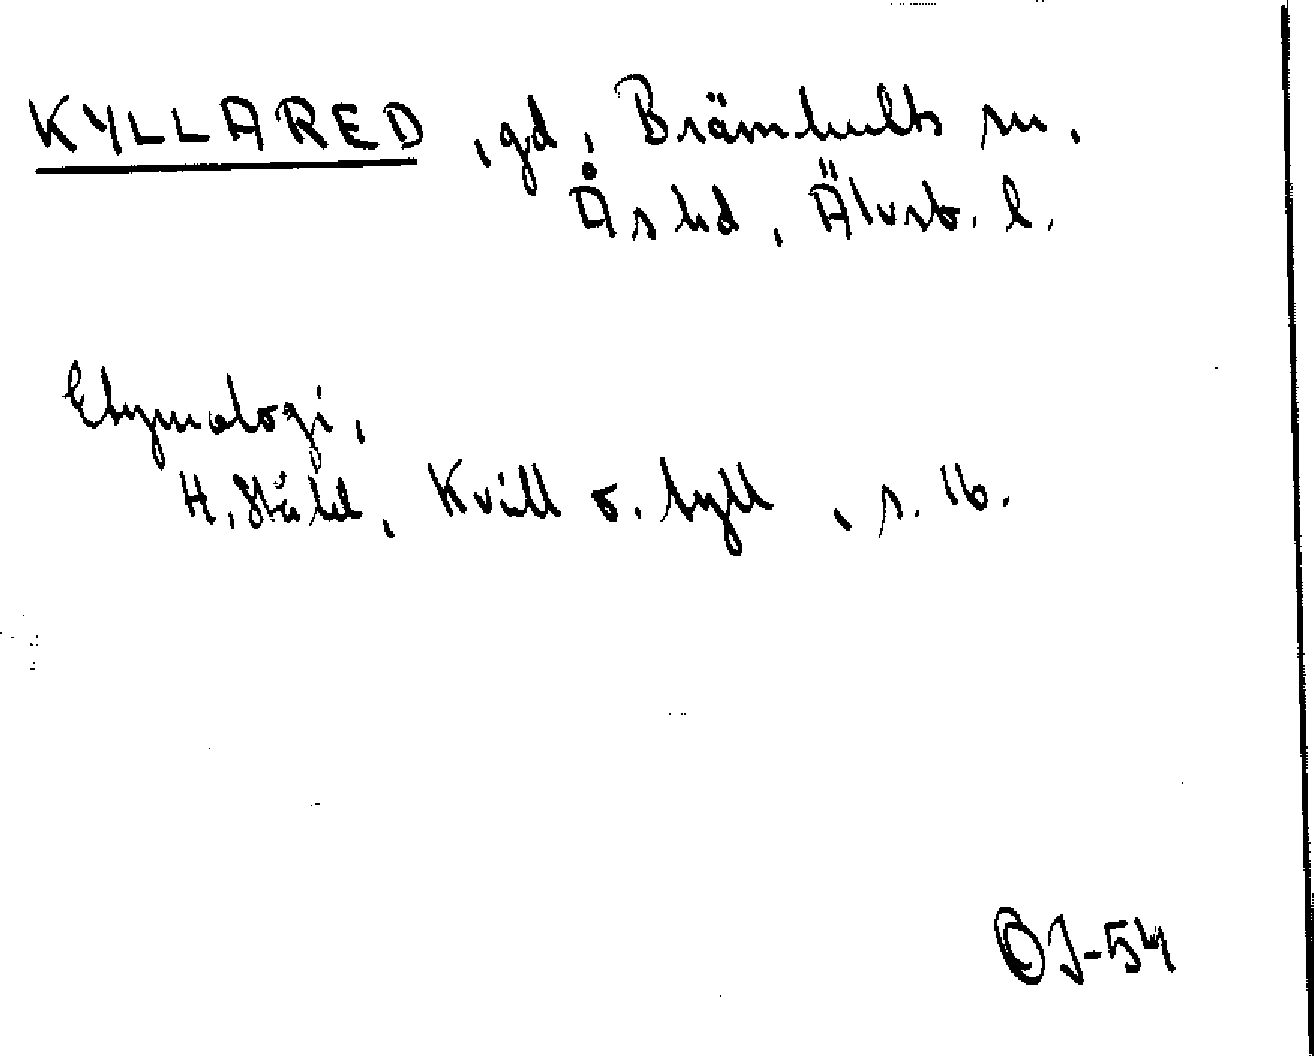 KYLLARED, gd, Brämhults sn,
Ås hd, Älvsb. l.
Etymologi,
H. Ståhl, Kvill o. tyll, s. 16.
OJ-54